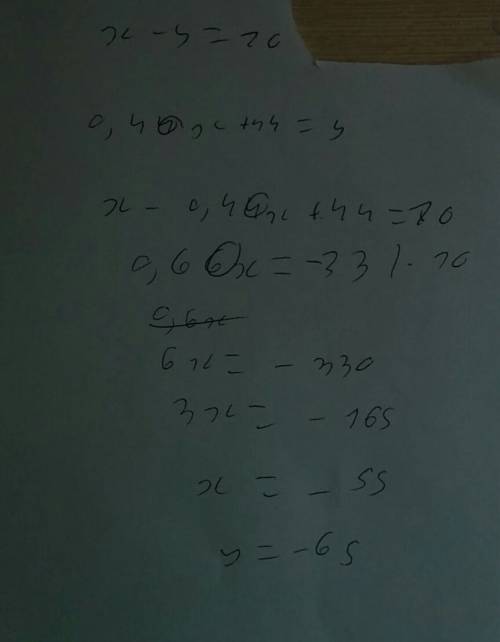 x - y = 10
0,40x + 44 = y
x - 0,40x + 44 = 10
0,60x = -33 /· 10
0,6x
6x = - 330
3x = - 165
x = - 55
y = -65